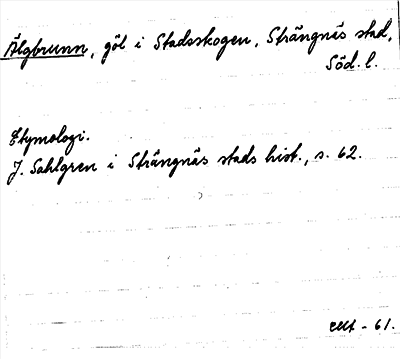 Älgbrunn, göl i Stadsskogen, Strängnäs stad,
Söd. l.
Etymologi.
J. Sahlgren i Strängnäs stads hist., s. 62.
- 61.